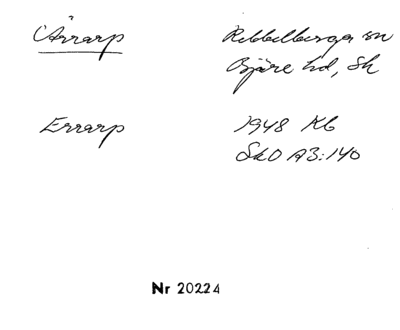 Ärrarp
Rebbelberga sn
Bjäre hd, Sk
Errarp
1948 Kb
SkO A3:140
Nr 20224